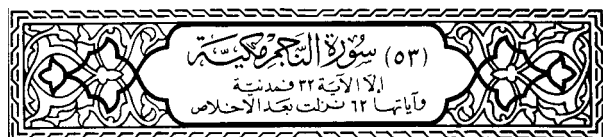 (٥٣) سُورَة النَّجم مَكيَّة
إلا الآية ٣٢ فمدنية
وآياتها ٦٢ نزلت بعد الاخلاص